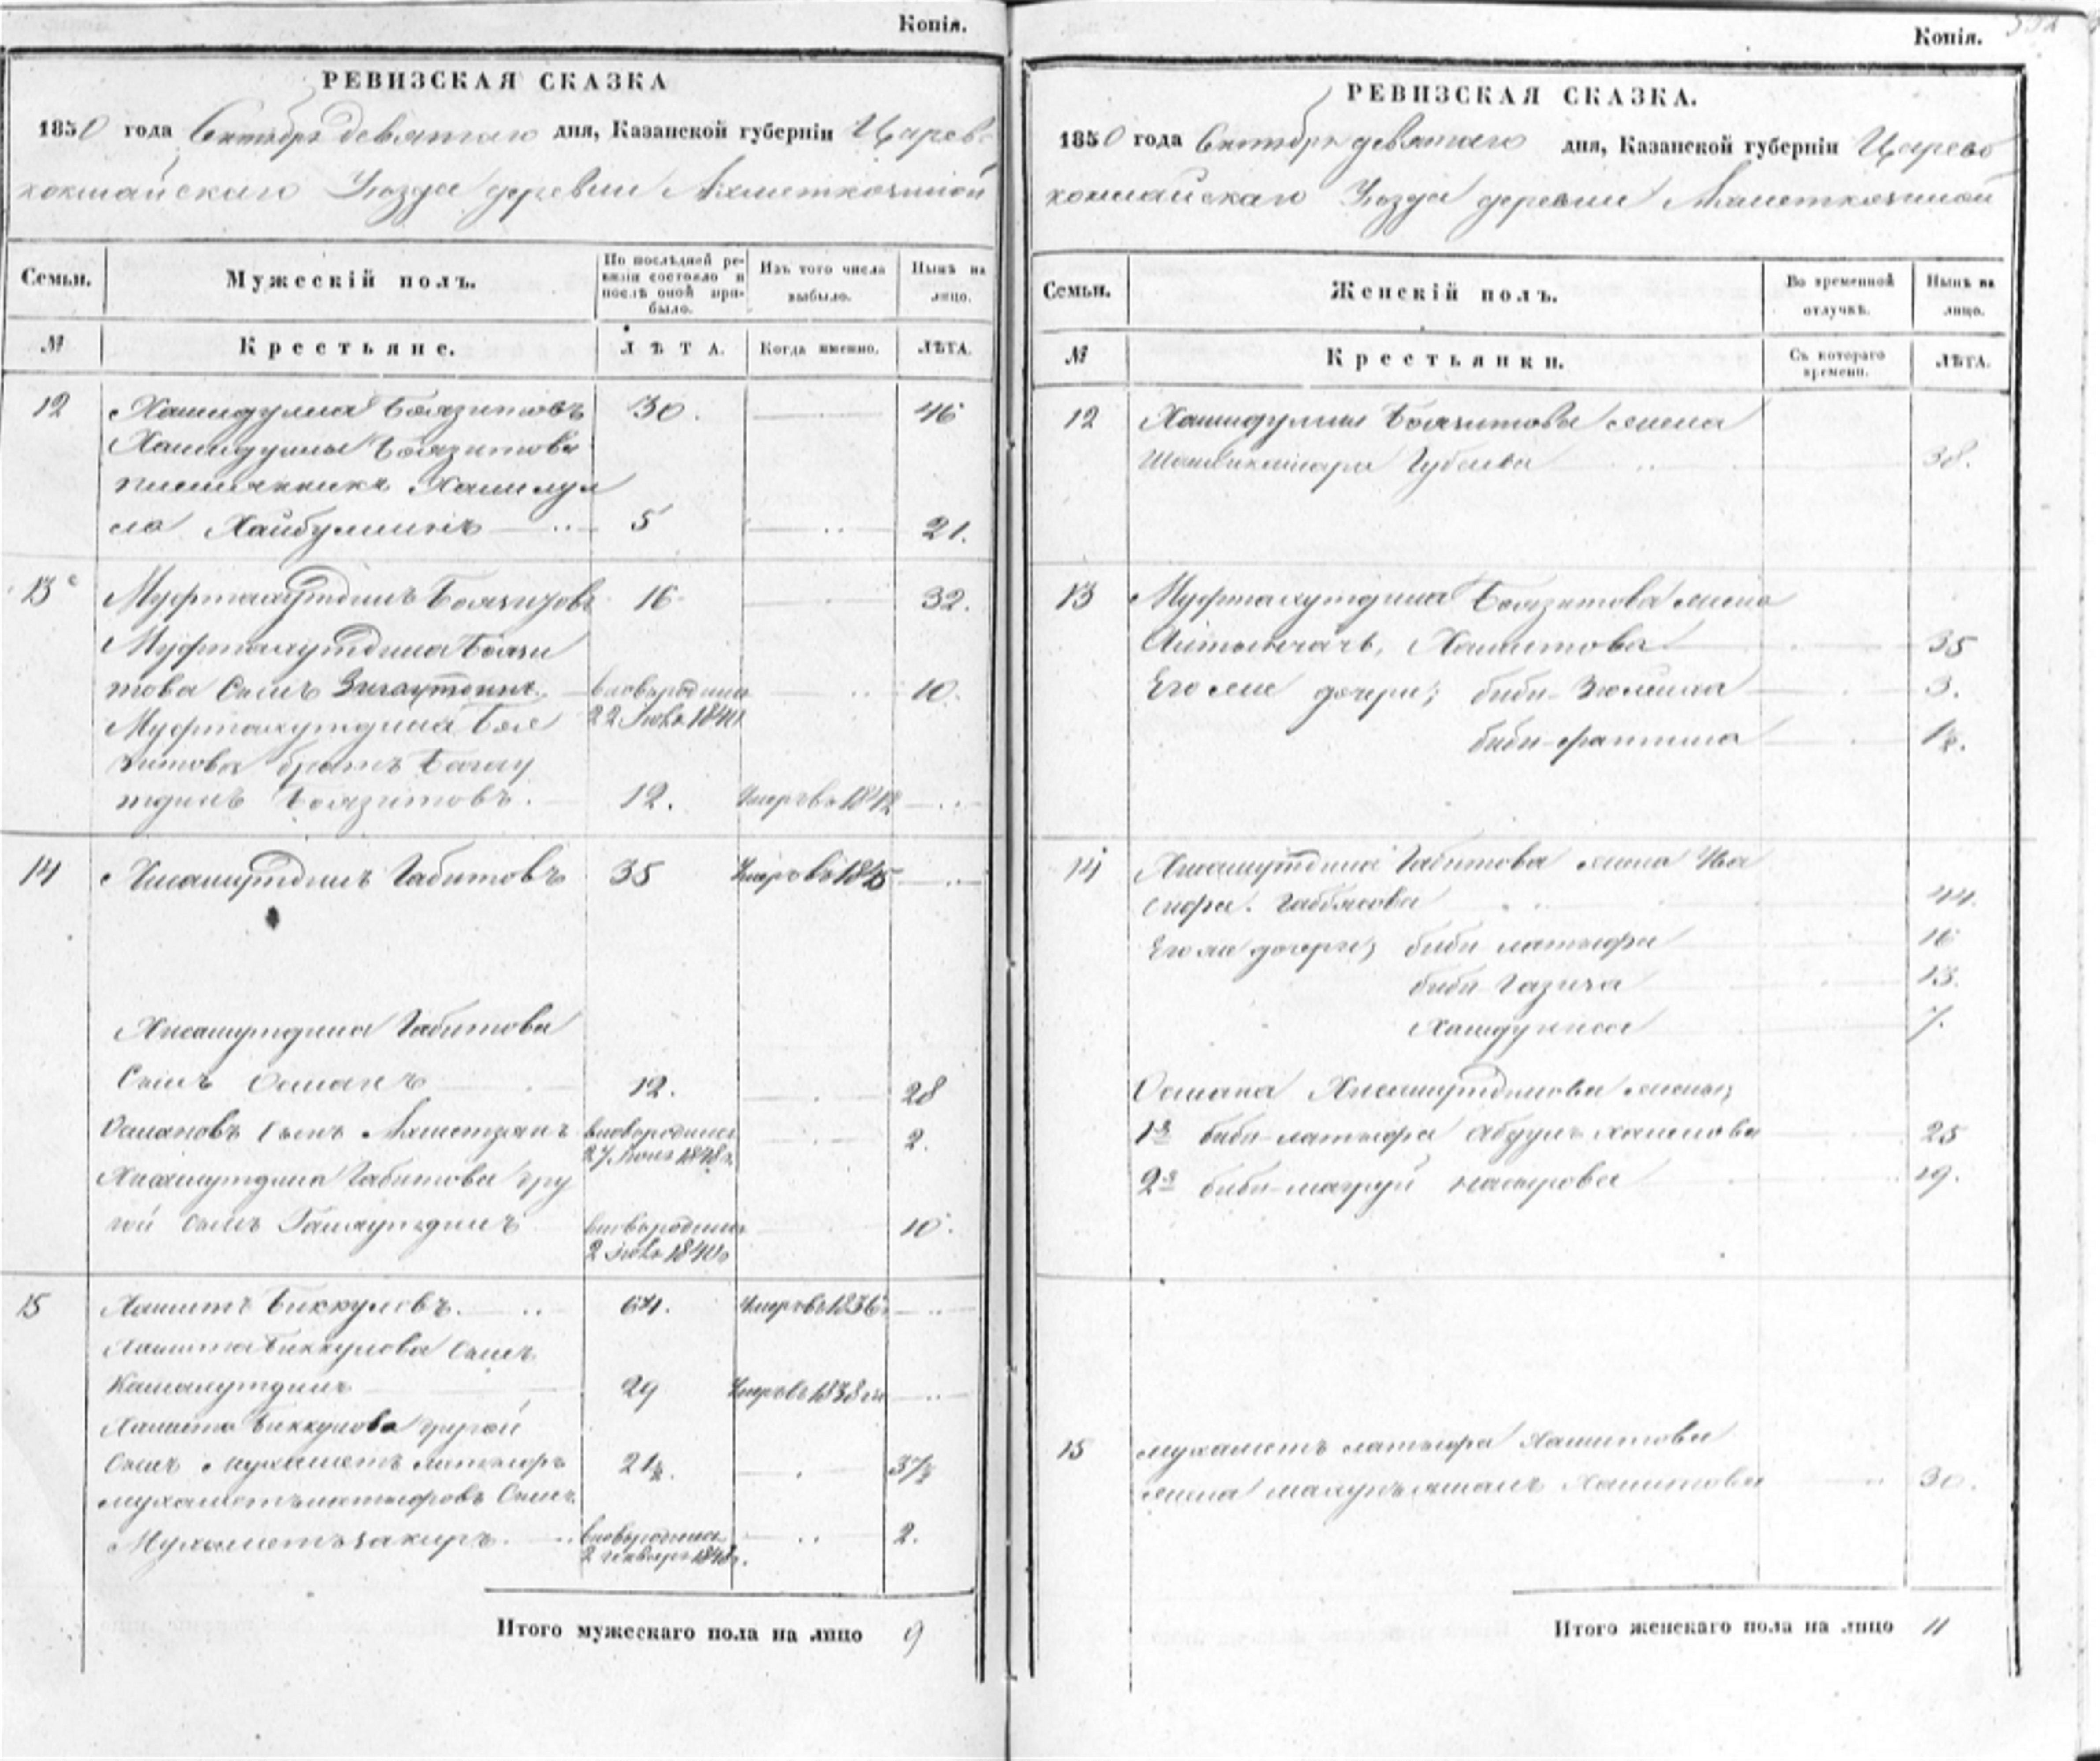 Копія.
РЕВИЗСКАЯ СКАЗКА
1850 года Октября девятаго дня, Казанской губерніи Царево
кокшайскаго Уѣзда деревни Ахметкочиной
Семьи. Мужескій полъ. По послѣдней ре-
визіи состояло и
послѣ оной при-
было. Изъ того числа
выбыло. Нынѣ на
лицо.
№ Крестьяне. ЛѢТА. Когда именно. ЛѢТА.
12 Хамидулла Боязитовъ 30. 46
Хамидуллы Боязитова
племянникъ
Хайбуллинъ 5 21.
13 Муфтахутдинъ Боязитовъ 16 32.
Муфтахутдина Боязи
това Сынъ вновьрожден 10.
22 1840
Муфтахутдина Боя
зитова братъ Багау
тдинъ Боязитовъ. 12. Умеръ въ 1842
14 Хисамутдинъ Габитовъ 35 Умеръ въ 1845
Хисамутдина Габитова
Сынъ Османъ 12. 28
Османовъ Сынъ Ахметзянъ вновьрожден 2.
27 1848 г.
Хисамутдина Габитова дру
гой сынъ вновьрожден 10.
2 1840 г.
15 Хамитъ Биккуловъ. 64. Умеръ въ 1836
Хамита Биккулова Сынъ
Камалутдинъ 29 Умеръ въ 1838
Хамита Биккулова другой
Сынъ Мухаметъ латыфъ 21½. 37½
Мухаметълатыфовъ Сынъ
Мухаметзакиръ. вновьрожден 2.
2 января 1848 г.
Итого мужескаго пола на лицо 9
Копія.
РЕВИЗСКАЯ СКАЗКА.
1850 года Октября девятаго дня, Казанской губерніи Царево
кокшайскаго Уѣзда деревни Ахметкочиной
Семьи. Женскій полъ. Во временной
отлучкѣ. Нынѣ на
лицо.
№ Крестьянки. Съ котораго
времени. ЛѢТА.
12 Хамидуллы Боязитова жена
Губеева 38.
13 Муфтахутдина Боязитова жена
Хамитова 35
Его же дочери; биби 3.
биби-фатима 1½.
14 Хисамутдина Габитова жена
Габбясова 44.
Его же дочери; биби латыфа 16
биби Газиза 13.
7.
Османа Хисамутдинова жены;
1я биби-латыфа 25
2я биби-магруй насырова 19.
15 Мухаметъ латыфа Хамитова
жена Хамитова 30.
Итого женскаго пола на лицо 11